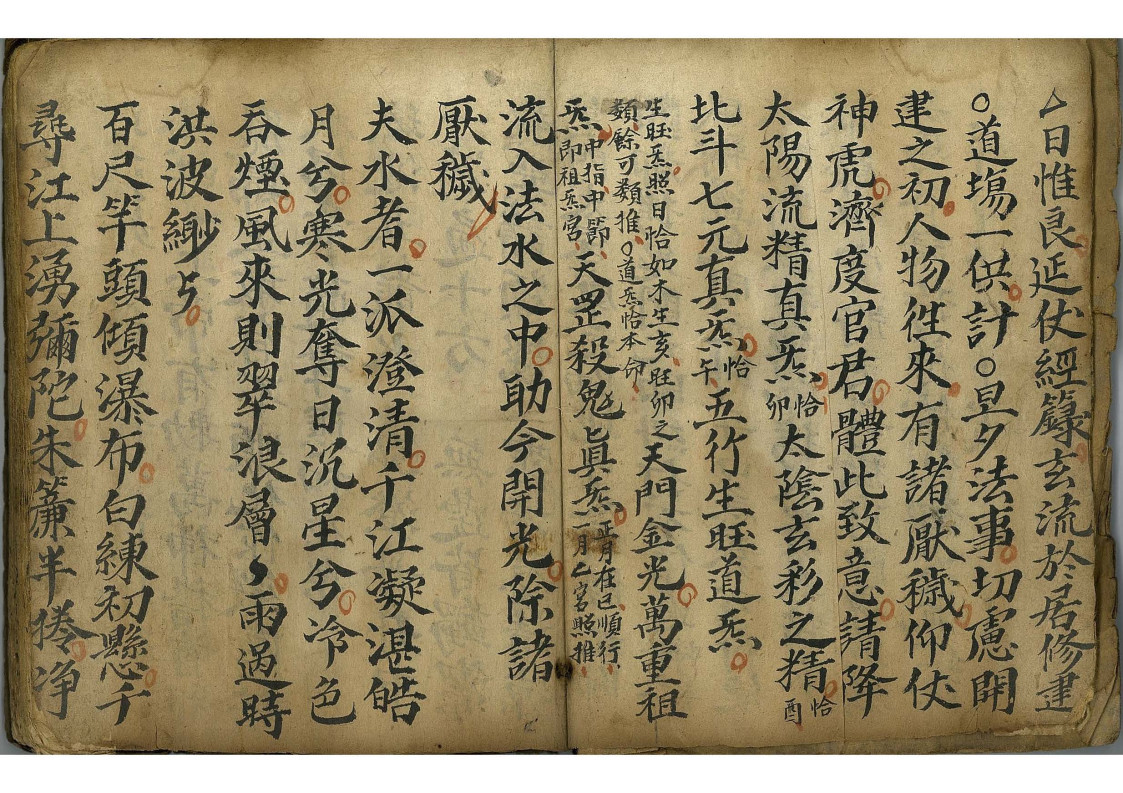 亼日惟良延仗經籙玄流於居修建
○道塲一供計○昱夕法事切慮開
建之初人物往來有諸厭穢仰仗
神虎濟度官君體此致意請降
太陽流精真炁恰卯太陰玄彩之精恰酉
北斗七元真炁恰午五行生旺道炁
生旺炁照日恰如木生亥旺卯之
類餘可類推○道炁恰本命
天門金光萬重祖
炁中指中節即祖炁宮天罡殺鬼眞炁正月在巳順行一月乙宮照推
流入法水之中助今開光除諸
厭穢
夫水者一派澄清千江凝湛皓
月兮寒光奪日沉星兮冷色
吞煙風來則翠浪層〻雨過時
洪波緲丂
百尺竿頭傾瀑布白練初懸千
尋江上湧彌陀朱簾半捲净